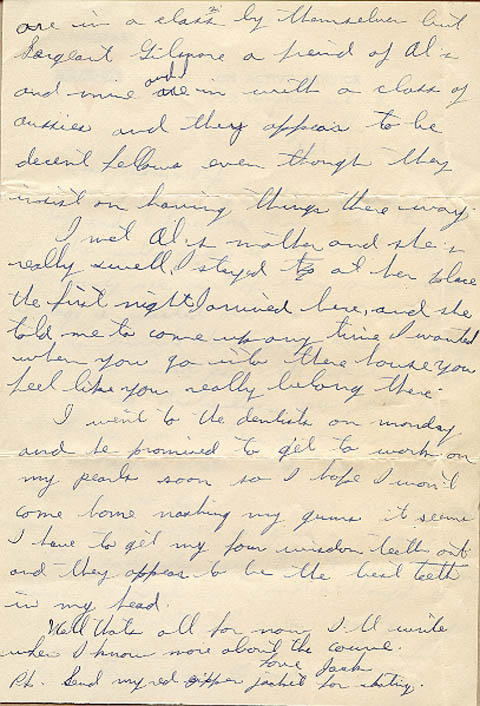 are in a class by themselves but
Sargeant Gilmore a freind of Al's
and mine and are in with a class of
aussies and they appear to be
decent fellows even though they
insist on having things there way.
I met Al's mother and she's
really swell, I stayed at her place
the first night I arrived here, and she
told me to come up any time I wanted
when you go into there house you
feel like you really belong there.
I went to the dentists on monday
and he promised to get to work on
my pearls soon so I hope I won't
come home nashing my gums it seems
I have to get my four wisdom teeth out
and they appear to be the best teeth
in my head.
Well thats all for now I'll write
when I know more about the course.
Love Jack
Ps. Send my red zipper jacket for skating.